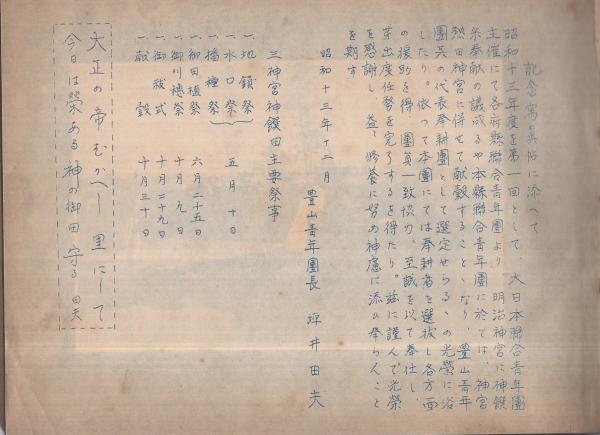 記念寫眞帖に添へて
昭和十三年度を第一回として、大日本聯合青年團
主催にて各府縣聯合青年團より 明治神宮に神饌
米奉献の議成るや本縣聯合青年團に於ては、神宮
熱田神宮に併せて献穀することゝなり、豊山青年
團員の代表奉耕團として選定せらるゝの光榮に浴
したり。依って本團にては奉耕者を選拔し各方面
の援助を得、團員一致協力、至誠を以て奉仕し、
芽出度任務を完了するを得たり。茲に謹んで光榮
を感謝し、益々修養に努め神慮に添ひ奉らんこと
を期す
昭和十三年十二月
豊山青年團長 坪井田夫
三神宮神饌田主要祭事
一、地鎮祭
一、水口祭 五月 十日
一、播種祭
一、御田植祭 六月二十五日
一、御刈穂祭 十月 九日
一、御祓式 十月二十九日
一、献穀 十月三十日
大正の帝むかへし 里にして
今日は榮ある神の御田守る 田夫